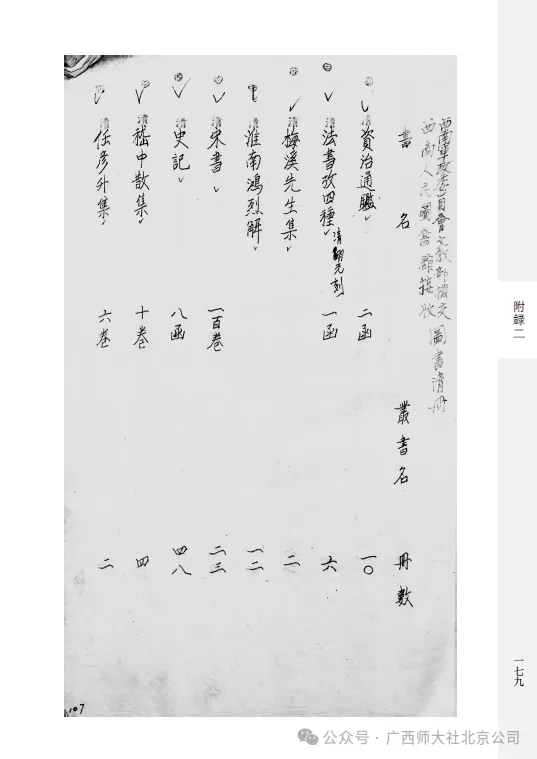 西南軍政委員會文教部撥交
西南人民圖書館接收 圖書清冊
書名 叢書名 冊數
清 資治通鑑 二函 一〇
清 法書攷四種 清翻元刻 一函 六
清 梅溪先生集 二
清 淮南鴻烈解 一二
清 宋書 一百卷 二三
清 史記 八函 四八
清 嵇中散集 十卷 四
清 任彥升集 六卷 二
107
附録二
一七九
公众号·广西师大社北京公司